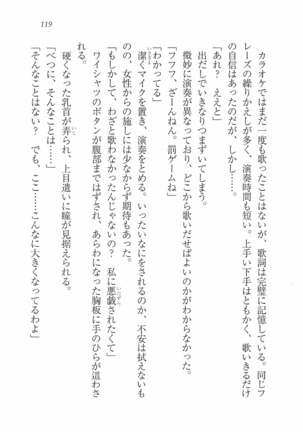 119
カラオケではまだ一度も歌ったことはないが、歌詞は完璧に記憶している。同じフ
レーズの繰りかえしが多く、演奏時間も短い。上手い下手はともかく、歌いきるだけ
の自信はあったのだが、しかし……。
「あれ？　ええと」
出だしでいきなりつまずいてしまう。
微妙に演奏が異なっており、どこから歌いだせばよいのかがわからなかった。
「フフフ、ざーんねん。罰ゲームね」
「わかってる」
潔くマイクを置き、演奏をとめる。いったいなにをされるのか、不安は拭えないも
のの、女性からの施しには少なからず期待もあった。
「もしかして、わざと歌わなかったんじゃないの？　私に悪戯されたくて」
ワイシャツのボタンが腹部まではずされ、あらわになった胸板に手のひらが這わさ
れる。
硬くなった乳首が弄られ、上目遣いに瞳が見据えられる。
「べつに、そんなことは……」
「そんなことはない？　でも、ここ……こんなに大きくなってるわよ」